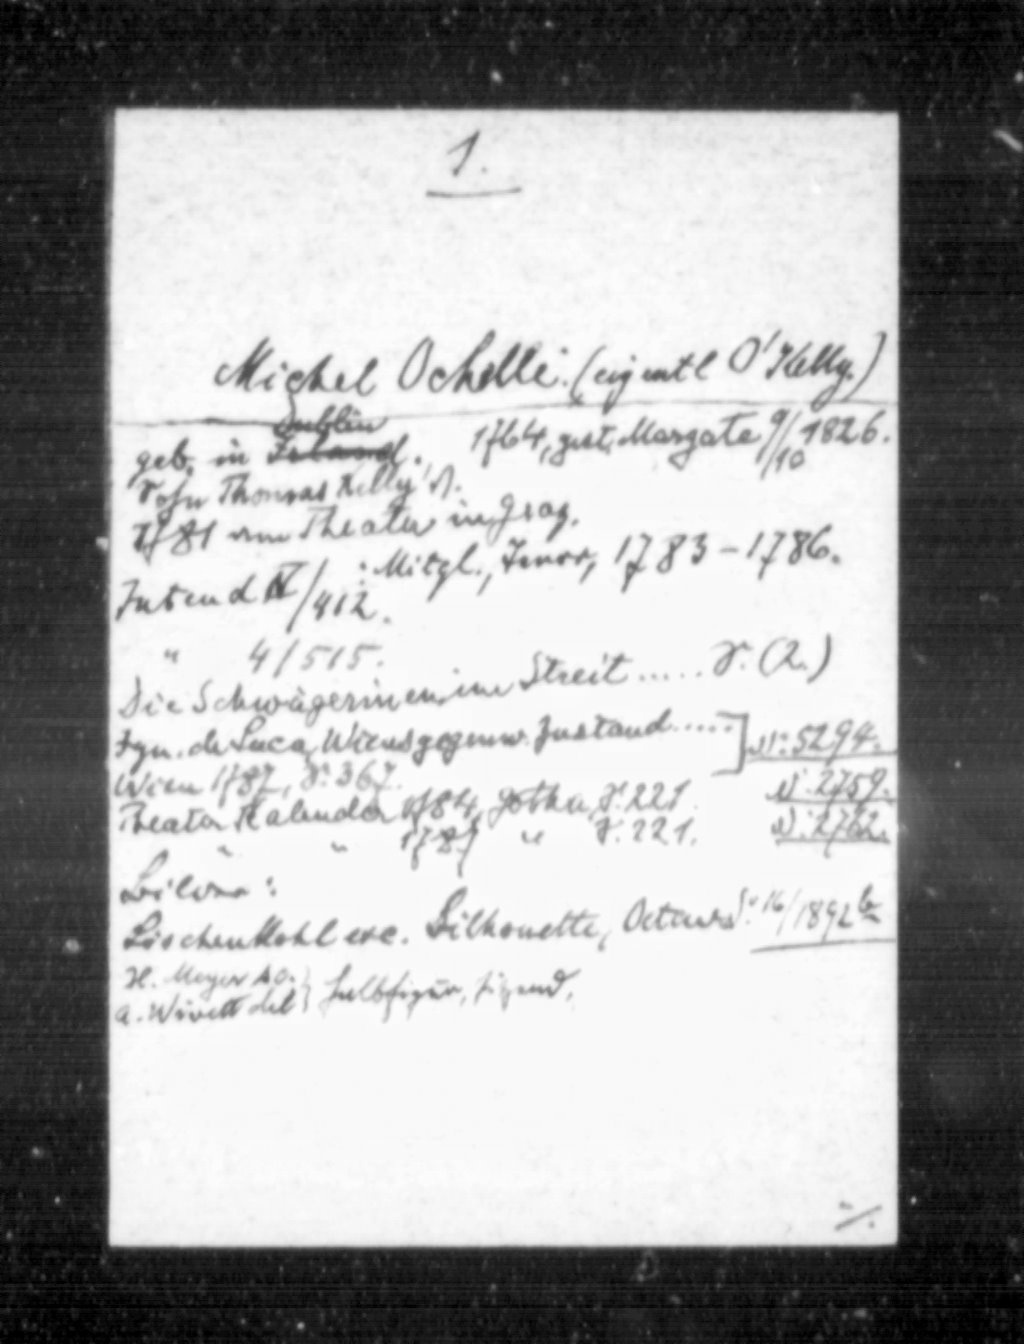 1.
Michel Ochelli. (eigentl O'Kelly.)
Dublin
geb. in Irland. 1764, gest. Margate 9/10 1826.
Sohn Thomas Kelly's.
1781 am Theater in Graz.
Intend IV/412. : Mitgl., Tenor, 1783-1786.
" 4/515.
Die Schwägerinen, im Streit ..... S. (2.)
Ign. de Luca, Wiens gegenw. Zustand ..... ] N: 5294.
Wien 1787, S. 367.
Theater Kalender 1784, Gotha, S. 221. N: 2759.
" " 1785 " S. 221. N: 2762.
Bilder:
Löschenkohl exc. Silhouette, Octav S. 16/1892 b
H. Meyer sc.
A. Wivell del } Halbfigur, sitzend.
./.